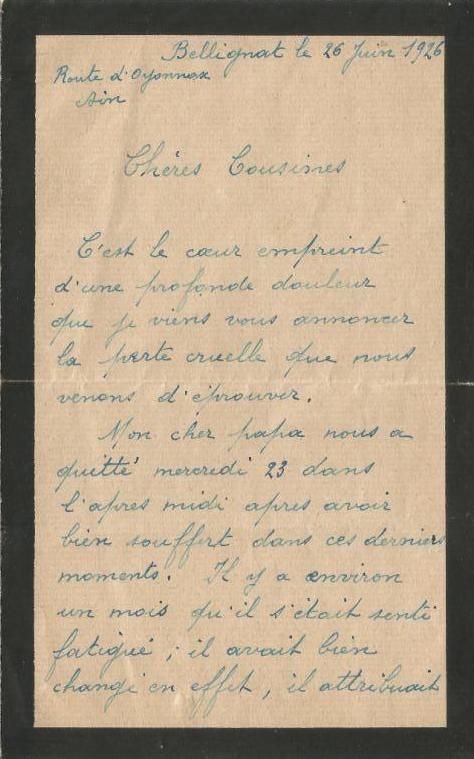 Bellignat le 26 Juin 1926
Route d'Oyonnax
Ain
Chères Cousines
C'est le cœur empreint
d'une profonde douleur
que je viens vous annoncer
la perte cruelle que nous
venons d'éprouver.
Mon cher papa nous a
quitté mercredi 23 dans
l'apres midi apres avoir
bien souffert dans ces derniers
moments. Il y a environ
un mois qu'il s'était senti
fatigué ; il avait bien
changé en effet, il attribuait